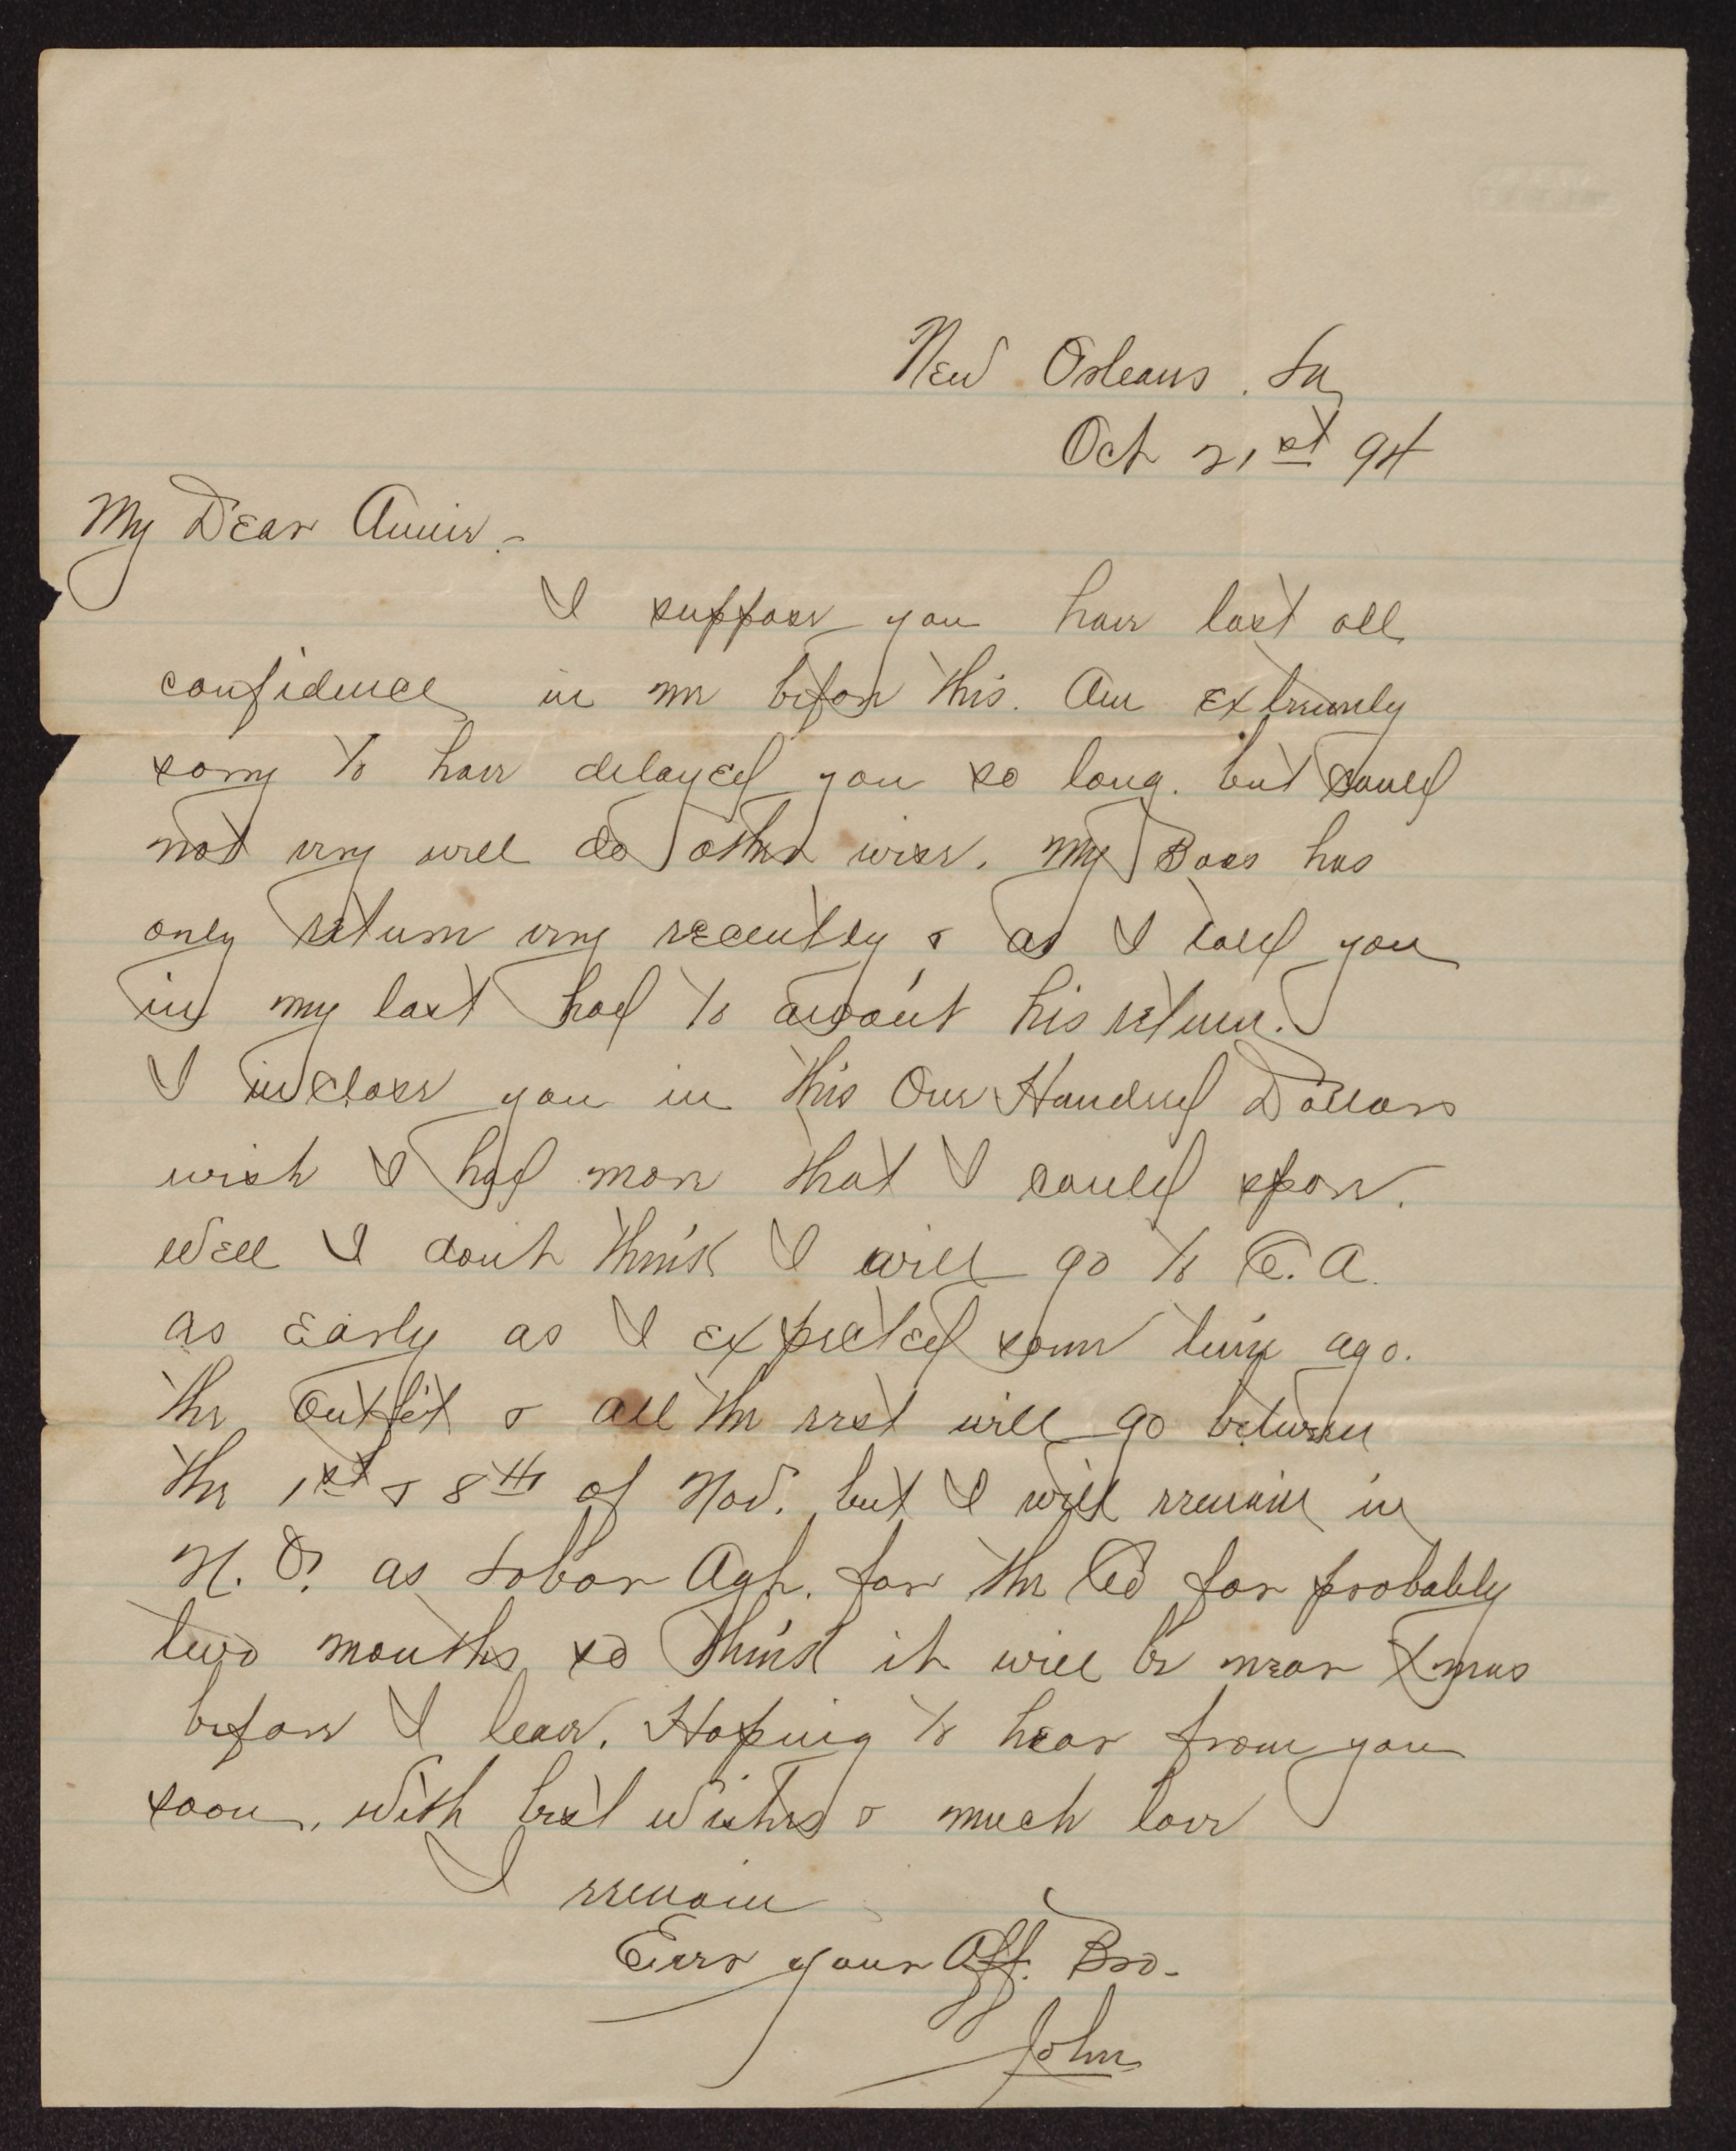 New Orleans. La
Oct 21st 94
My Dear Annie.-
I suppose you have lost all
confidence in me before this. Am extremely
sorry to have delayed you so long. but could
not very well do other wise. My Boss has
only return very recently & as I told you
in my last had to await his return.
I inclose you in this One Hundred Dollars
wish I had more that I could spare.
Well I don't think I will go to C.A.
as early as I expected some time ago.
The outfit & all the rest will go between
the 1st & 8th of Nov. but I will remain in
N.O. as Labor Agt. for the Co for probably
two months so think it will be near Xmas
before I leave. Hoping to hear from you
soon, With best wishes & much love
I remain
Ever your Aff. Bro-
John